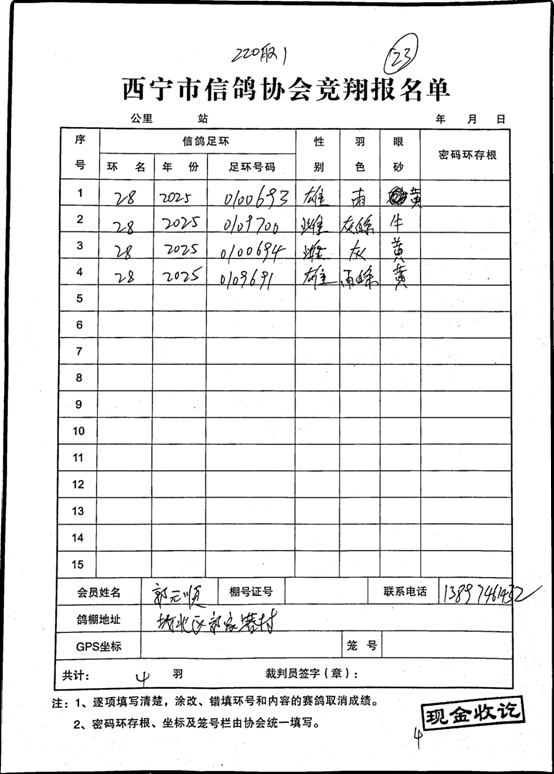 220取1
23
西宁市信鸽协会竞翔报名单
公里 站 年 月 日
序号 信鸽足环 性别 羽色 眼砂 密码环存根
环名 年份 足环号码
1 28 2025 0100693 雄 雨 黄
2 28 2025 0109700 雌 灰绦 牛
3 28 2025 0100694 雌 灰 黄
4 28 2025 0109691 雄 雨绦 黄
5
6
7
8
9
10
11
12
13
14
15
会员姓名 郭元顺 棚号证号 联系电话
鸽棚地址 城北区郭家营村
GPS坐标 笼号
共计: 4 羽 裁判员签字(章):
注:1、逐项填写清楚,涂改、错填环号和内容的赛鸽取消成绩。
2、密码环存根、坐标及笼号栏由协会统一填写。
现金收讫
4